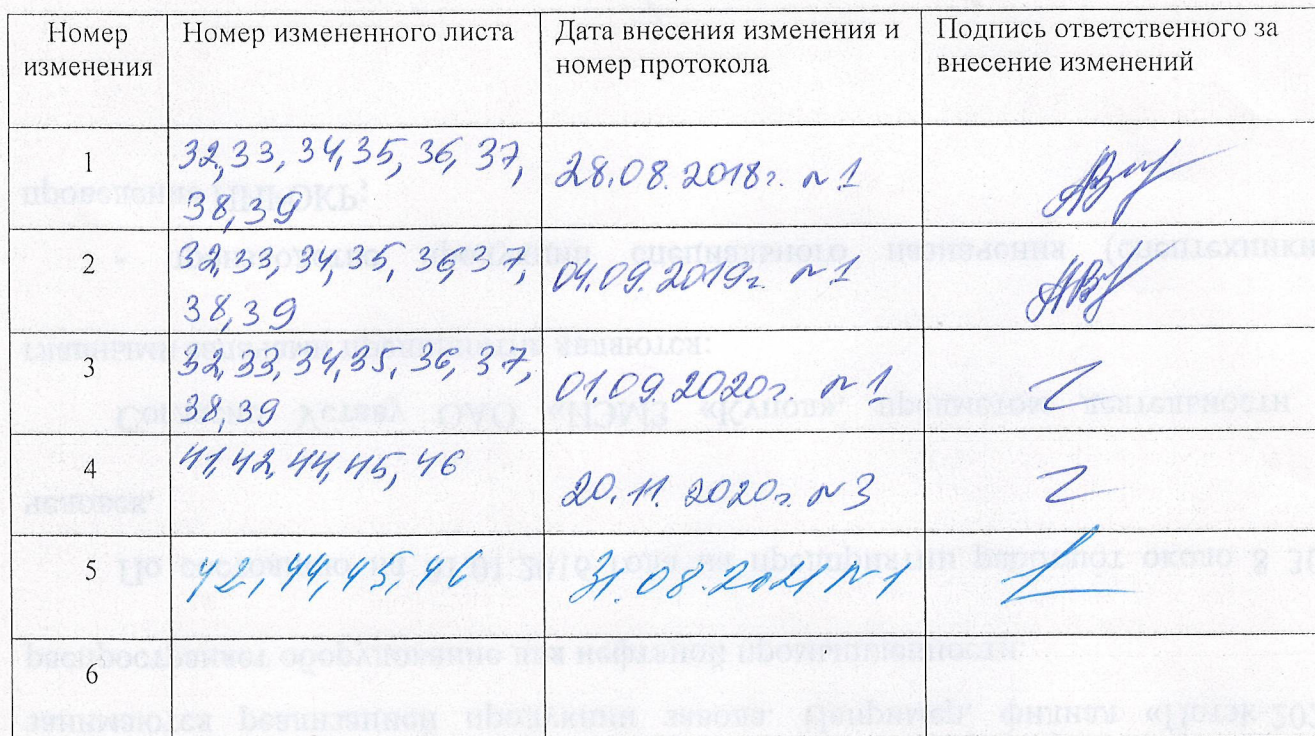 Номер изменения
Номер измененного листа
Дата внесения изменения и номер протокола
Подпись ответственного за внесение изменений
1
32,33, 34,35, 36, 37,
38,39
28.08.2018г. №1
2
32,33, 34,35, 36,37,
38,39
04.09.2019г. №1
3
32,33,34,35, 36, 37,
38,39
01.09.2020г. №1
4
41,42,44,45, 46
20.11.2020г. №3
5
42,44,45,46
31.08.2021 №1
6